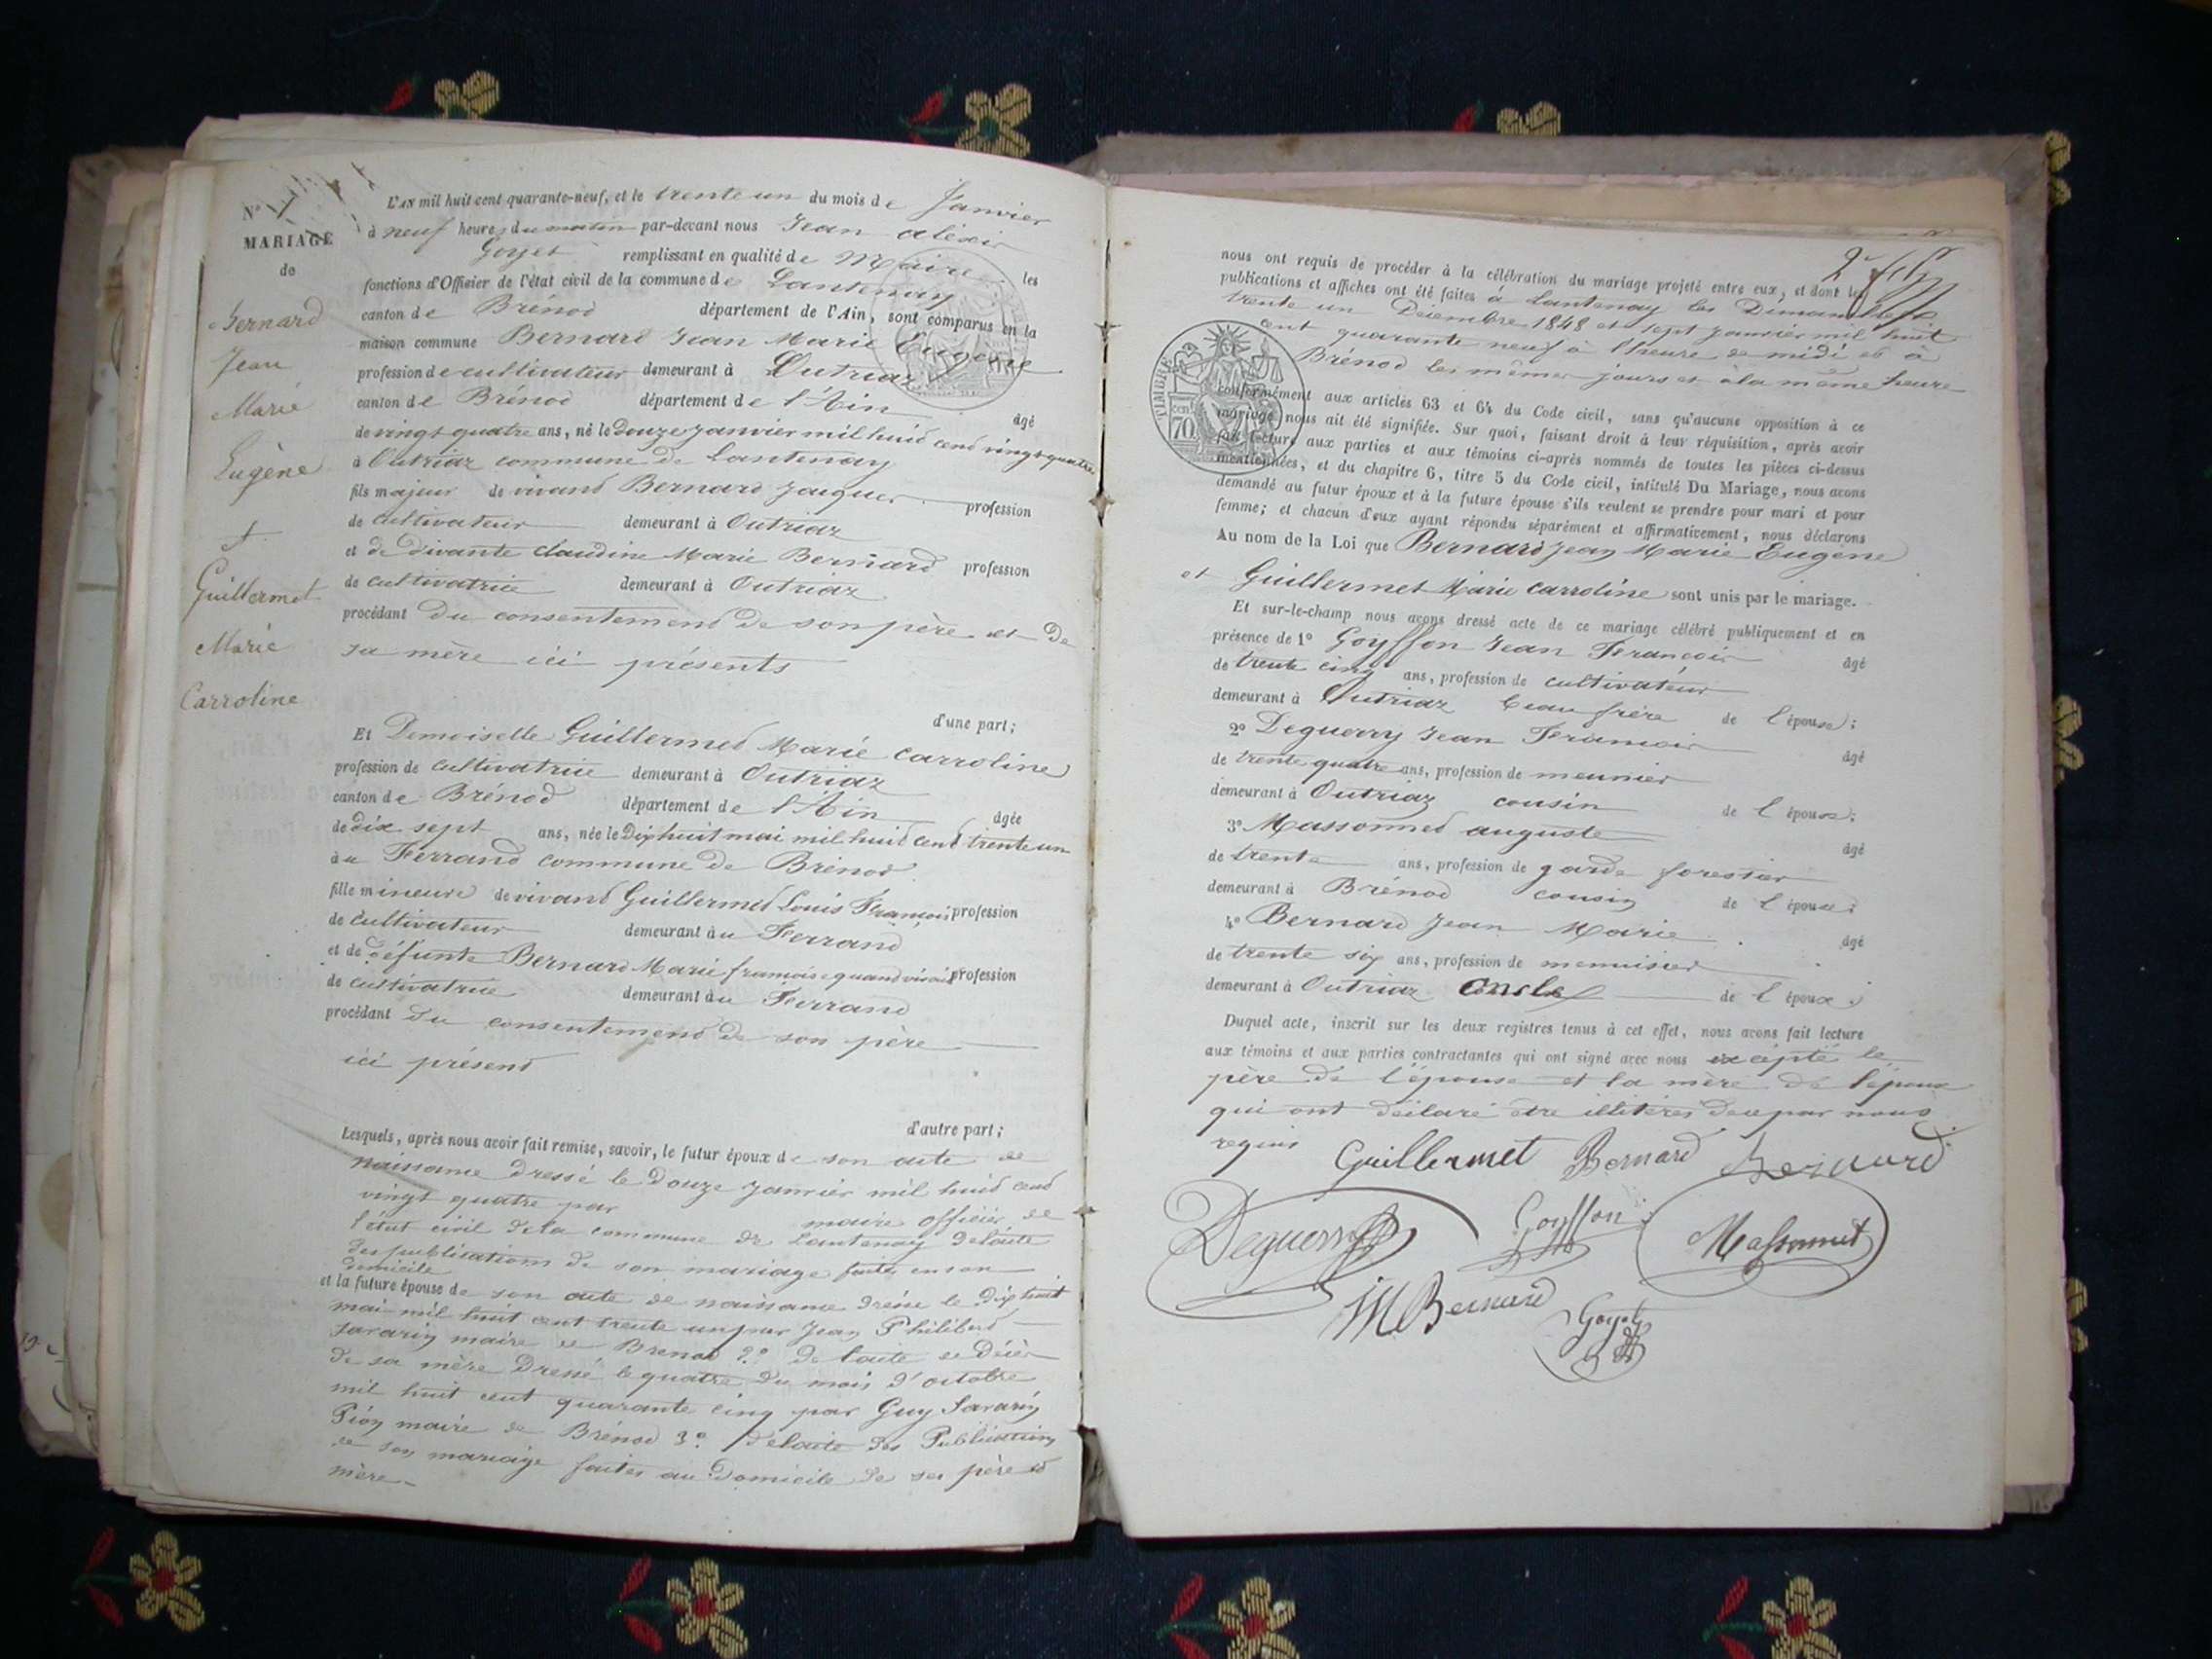 N° 1
MARIAGE
de
Bernard
Jean
Marie
Eugène
et
Guillermet
Marie
Carroline
L'AN mil huit cent quarante-neuf, et le trente un du mois de Janvier
à neuf heures du matin par-devant nous Jean aléxis
Goyet remplissant en qualité de Maire les
fonctions d'Officier de l'état civil de la commune de Lantenay
canton de Brénod département de l'Ain, sont comparus en la
maison commune Bernard Jean Marie Eugène
profession de cultivateur demeurant à Outriaz
canton de Brénod département de l'Ain âgé
de vingt quatre ans, né le Douze janvier mil huid cend vingt quatre
à Outriaz commune de Lantenay
fils majeur de vivand Bernard Jacques profession
de cultivateur demeurant à Outriaz
et de vivante claudine Marie Bernard profession
de cultivatrice demeurant à Outriaz
procédant Du consentemend de son père et De
sa mère ici présents
d'une part;
Et Demoiselle Guillermed Marie carroline
profession de cultivatrice demeurant à Outriaz
canton de Brénod département de l'Ain âgée
de dix sept ans, née le Dix huit mai mil huid cend trente un
àu Ferrand commune De Brénod
fille mineure de vivand Guillermed Louis François profession
de cultivateur demeurant àu Ferrand
et de défunte Bernard Marie francoise quand vivait profession
de cultivatrice demeurant àu Ferrand
procédant Du consentemend De son père
ici présend
d'autre part;
Lesquels, après nous avoir fait remise, savoir, le futur époux de son acte de
naissance Dressé le Douze janvier mil huid cend
vingt quatre par maire officier de
l'état civil de la commune de Lantenay de l'acte
des publications de son mariage faites en son
domicile
et la future épouse de son acte de naissance dréssé le dix huit
mai mil huit cent trente un par Jean Philibert
Savarin maire de Brenod 2° De l'acte de décès
De sa mère Dressé le quatre Du mois d'octobre
mil huit cent quarante cinq par Guy Savarin
maire de Brénod 3° De l'acte des Publications
de son mariage faites au Domicile de ses père et
mère
nous ont requis de procéder à la célébration du mariage projeté entre eux, et dont les
publications et affiches ont été faites à Lantenay les Dimanches
trente un Décembre 1848 et sept janvier mil huit
cent quarante neuf à l'heure de midi et à
Brénod les mêmes jours et à la même heure
conformément aux articles 63 et 64 du Code civil, sans qu'aucune opposition à ce
mariage nous ait été signifiée. Sur quoi, faisant droit à leur réquisition, après avoir
fait lecture aux parties et aux témoins ci-après nommés de toutes les pièces ci-dessus
mentionnées, et du chapitre 6, titre 5 du Code civil, intitulé Du Mariage, nous avons
demandé au futur époux et à la future épouse s'ils veulent se prendre pour mari et pour
femme; et chacun d'eux ayant répondu séparément et affirmativement, nous déclarons
Au nom de la Loi que Bernard Jean Marie Eugène
et Guillermet Marie carroline sont unis par le mariage.
Et sur-le-champ nous avons dressé acte de ce mariage célébré publiquement et en
présence de 1° Goyffon Jean Francois âgé
de trente cinq ans, profession de cultivateur
demeurant à Outriaz beau frère de l'épouse;
2° Deguerry Jean Francois âgé
de trente quatre ans, profession de meunier
demeurant à Outriaz cousin de l'épouse;
3° Massonned auguste âgé
de trente ans, profession de garde forestier
demeurant à Brénod cousin de l'épouse;
4° Bernard Jean Marie âgé
de trente six ans, profession de menuisier
demeurant à Outriaz oncle de l'époux;
Duquel acte, inscrit sur les deux registres tenus à cet effet, nous avons fait lecture
aux témoins et aux parties contractantes qui ont signé avec nous excépté le
père De l'épouse et la mère De l'époux
qui ont déclaré être illitérés De ce par nous
requis
Guillermet Bernard Bernard
Deguerry Goyffon Massonnet
JM Bernard Goyet
TIMBRE
70 cent